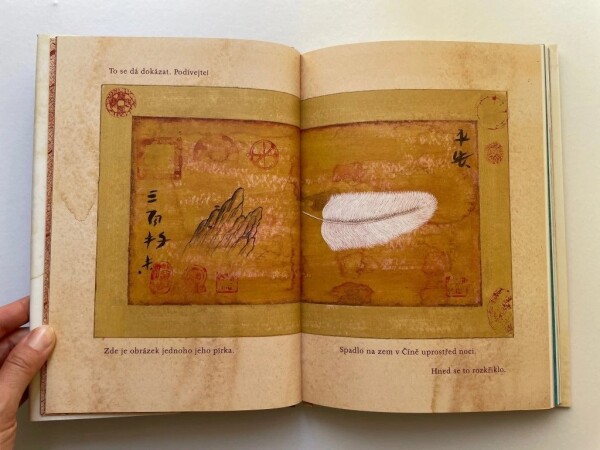 To se dá dokázat. Podívejte!
平安
Zde je obrázek jednoho jeho pírka.
Spadlo na zem v Číně uprostřed noci.
Hned se to rozkřiklo.